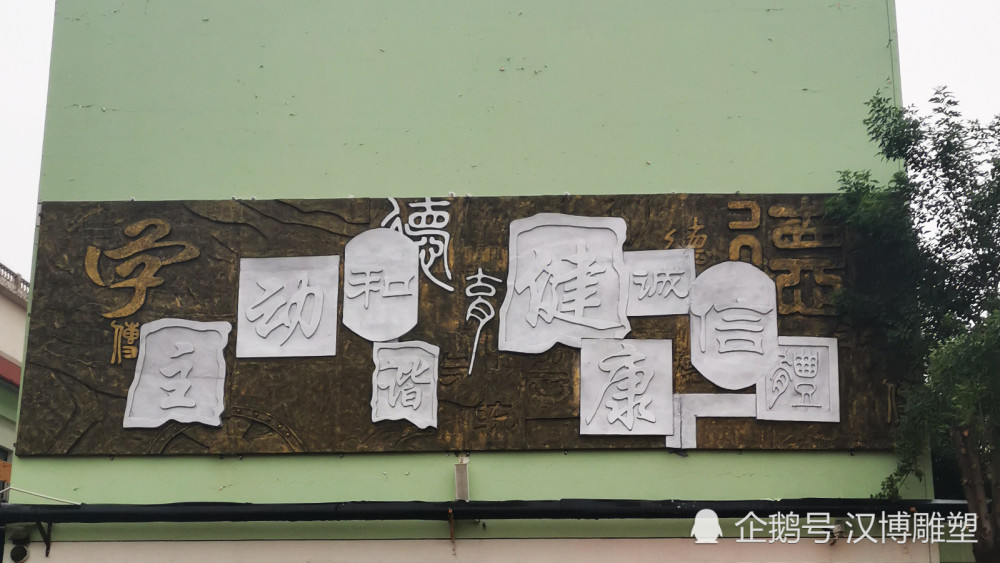 学
傳
主
动
和
谐
德
育
健
康
诚
信
體
德
企鹅号 汉博雕塑